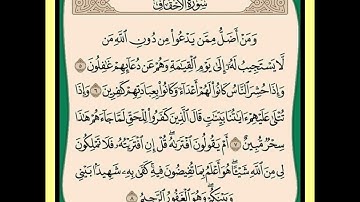 سُورَةُ الْأَحْقَافِ
وَمَنْ أَضَلُّ مِمَّن يَدْعُوا۟ مِن دُونِ ٱللَّهِ مَن
لَّا يَسْتَجِيبُ لَهُۥٓ إِلَىٰ يَوْمِ ٱلْقِيَـٰمَةِ وَهُمْ عَن دُعَآئِهِمْ غَـٰفِلُونَ ٥
وَإِذَا حُشِرَ ٱلنَّاسُ كَانُوا۟ لَهُمْ أَعْدَآءً وَكَانُوا۟ بِعِبَادَتِهِمْ كَـٰفِرِينَ ٦ وَإِذَا
تُتْلَىٰ عَلَيْهِمْ ءَايَـٰتُنَا بَيِّنَـٰتٍ قَالَ ٱلَّذِينَ كَفَرُوا۟ لِلْحَقِّ لَمَّا جَآءَهُمْ هَـٰذَا
سِحْرٌ مُّبِينٌ ٧ أَمْ يَقُولُونَ ٱفْتَرَىٰهُ ۖ قُلْ إِنِ ٱفْتَرَيْتُهُۥ فَلَا تَمْلِكُونَ
لِى مِنَ ٱللَّهِ شَيْـًٔا ۖ هُوَ أَعْلَمُ بِمَا تُفِيضُونَ فِيهِ ۖ كَفَىٰ بِهِۦ شَهِيدًۢا بَيْنِى
وَبَيْنَكُمْ ۖ وَهُوَ ٱلْغَفُورُ ٱلرَّحِيمُ ٨